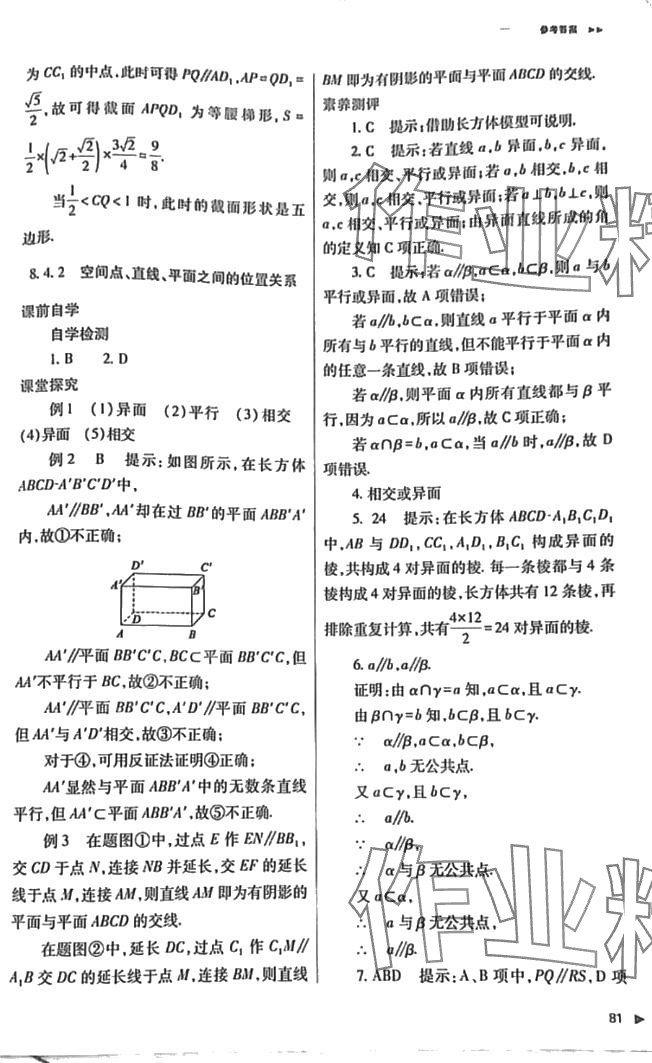 参考答案
为CC₁的中点.此时可得PQ∥AD₁,AP=QD₁=
√5/2,故可得截面 APQD₁ 为等腰梯形,S=
1/2×(√2+√2/2)×3√2/4=9/8.
当1/2<CQ<1时,此时的截面形状是五
边形.
8.4.2 空间点、直线、平面之间的位置关系
课前自学
自学检测
1.B 2.D
课堂探究
例1 (1)异面 (2)平行 (3)相交
(4)异面 (5)相交
例2 B 提示:如图所示,在长方体
ABCD-A'B'C'D'中,
AA'∥BB',AA'却在过BB'的平面ABB'A'
内,故①不正确;
D'
C'
A'
B'
D
C
A
B
AA'∥平面BB'C'C,BC⊂平面BB'C'C,但
AA'不平行于BC,故②不正确;
AA'∥平面BB'C'C,A'D'∥平面BB'C'C,
但AA'与A'D'相交,故③不正确;
对于④,可用反证法证明④正确;
AA'显然与平面ABB'A'中的无数条直线
平行,但AA'⊂平面ABB'A',故⑤不正确.
例3 在题图①中,过点E作EN∥BB₁,
交CD于点N,连接NB并延长,交EF的延长
线于点M,连接AM,则直线AM即为有阴影的
平面与平面ABCD的交线.
在题图②中,延长DC,过点C₁作C₁M∥
A₁B交DC的延长线于点M,连接BM,则直线
BM即为有阴影的平面与平面ABCD的交线.
素养测评
1.C 提示:借助长方体模型可说明.
2.C 提示:若直线a,b异面,b,c异面,
则a,c相交、平行或异面;若a,b相交,b,c相
交,则a,c相交、平行或异面;若a⊥b,b⊥c,则
a,c相交、平行或异面;由异面直线所成的角
的定义知C项正确.
3.C 提示:若α∥β,a⊂α,b⊂β,则a与b
平行或异面,故A项错误;
若a∥b,b⊂α,则直线a平行于平面α内
所有与b平行的直线,但不能平行于平面α内
的任意一条直线,故B项错误;
若α∥β,则平面α内所有直线都与β平
行,因为a⊂α,所以a∥β,故C项正确;
若α∩β=b,a⊂α,当a∥b时,a∥β,故D
项错误.
4.相交或异面
5.24 提示:在长方体ABCD-A₁B₁C₁D₁
中,AB与DD₁,CC₁,A₁D₁,B₁C₁构成异面的
棱,共构成4对异面的棱.每一条棱都与4条
棱构成4对异面的棱,长方体共有12条棱,再
排除重复计算,共有4×12/2=24对异面的棱.
6.a∥b,a∥β.
证明:由α∩γ=a知,a⊂α,且a⊂γ.
由β∩γ=b知,b⊂β,且b⊂γ.
∵ α∥β,a⊂α,b⊂β,
∴ a,b无公共点.
又a⊂γ,且b⊂γ,
∴ a∥b.
∵ α∥β,
∴ α与β无公共点.
又a⊂α,
∴ a与β无公共点.
∴ a∥β.
7.ABD 提示:A、B项中,PQ∥RS,D项
作业精
作业精
81